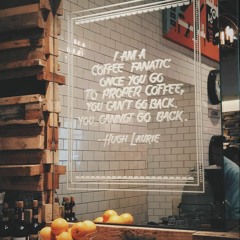 I AM A
COFFEE FANATIC
ONCE YOU GO
TO PROPER COFFEE,
YOU CAN'T GO BACK.
YOU CANNOT GO BACK.
-HUGH LAURIE